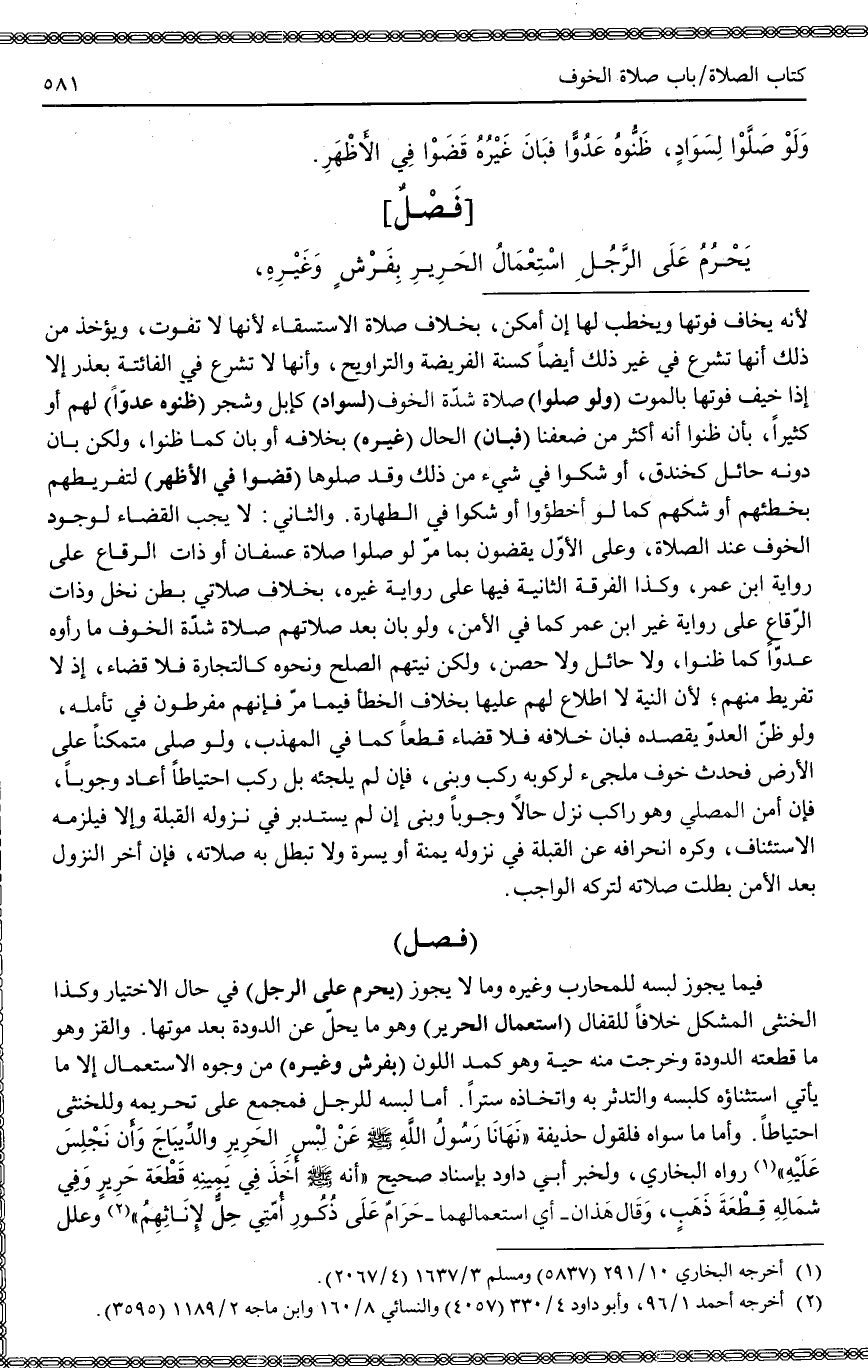 كتاب الصلاة/باب صلاة الخوف ٥٨١
وَلَوْ صَلَّوْا لِسَوَادٍ، ظَنُّوهُ عَدُوًّا فَبَانَ غَيْرُهُ قَضَوْا فِي الأَظْهَرِ.
[فَصْلٌ]
يَحْرُمُ عَلَى الرَّجُلِ اسْتِعْمَالُ الحَرِيرِ بِفَرْشٍ وَغَيْرِهِ،
لأنه يخاف فوتها ويخطب لها إن أمكن، بخلاف صلاة الاستسقاء لأنها لا تفوت، ويؤخذ من
ذلك أنها تشرع في غير ذلك أيضاً كسنة الفريضة والتراويح، وأنها لا تشرع في الفائتة بعذر إلا
إذا خيف فوتها بالموت (ولو صلوا) صلاة شدّة الخوف (لسواد) كإبل وشجر (ظنوه عدوّاً) لهم أو
كثيراً، بأن ظنوا أنه أكثر من ضعفنا (فبان) الحال (غيره) بخلافه أو بان كما ظنوا، ولكن بان
دونه حائل كخندق، أو شكوا في شيء من ذلك وقد صلوها (قضوا في الأظهر) لتفريطهم
بخطئهم أو شكهم كما لو أخطؤوا أو شكوا في الطهارة. والثاني: لا يجب القضاء لوجود
الخوف عند الصلاة، وعلى الأوّل يقضون بما مرّ لو صلوا صلاة عسفان أو ذات الرقاع على
رواية ابن عمر، وكذا الفرقة الثانية فيها على رواية غيره، بخلاف صلاتي بطن نخل وذات
الرّقاع على رواية غير ابن عمر كما في الأمن، ولو بان بعد صلاتهم صلاة شدّة الخوف ما رأوه
عدوّاً كما ظنوا، ولا حائل ولا حصن، ولكن نيتهم الصلح ونحوه كالتجارة فلا قضاء، إذ لا
تفريط منهم؛ لأن النية لا اطلاع لهم عليها بخلاف الخطأ فيما مرّ فإنهم مفرطون في تأمله،
ولو ظنّ العدوّ يقصده فبان خلافه فلا قضاء قطعاً كما في المهذب، ولو صلى متمكناً على
الأرض فحدث خوف ملجىء لركوبه ركب وبنى، فإن لم يلجئه بل ركب احتياطاً أعاد وجوباً،
فإن أمن المصلي وهو راكب نزل حالاً وجوباً وبنى إن لم يستدبر في نزوله القبلة وإلا فيلزمه
الاستئناف، وكره انحرافه عن القبلة في نزوله يمنة أو يسرة ولا تبطل به صلاته، فإن أخر النزول
بعد الأمن بطلت صلاته لتركه الواجب.
(فصل)
فيما يجوز لبسه للمحارب وغيره وما لا يجوز (يحرم على الرجل) في حال الاختيار وكذا
الخنثى المشكل خلافاً للقفال (استعمال الحرير) وهو ما يحلّ عن الدودة بعد موتها. والقز وهو
ما قطعته الدودة وخرجت منه حية وهو كمد اللون (بفرش وغيره) من وجوه الاستعمال إلا ما
يأتي استثناؤه كلبسه والتدثر به واتخاذه ستراً. أما لبسه للرجل فمجمع على تحريمه وللخنثى
احتياطاً. وأما ما سواه فلقول حذيفة «نَهَانَا رَسُولُ اللَّهِ ﷺ عَنْ لِبْسِ الحَرِيرِ والدِّيبَاجِ وَأَن نَجْلِسَ
عَلَيْهِ»(١) رواه البخاري، ولخبر أبي داود بإسناد صحيح «أنه ﷺ أَخَذَ فِي يَمِينِهِ قَطْعَة حَرِيرٍ وَفِي
شمالِهِ قِطْعَةَ ذَهَبٍ، وَقَال هَذَان ـ أي استعمالهما ـ حَرَامٌ عَلَى ذُكُورِ أُمَّتِي حِلٌّ لإِنَاثِهِمُ»(٢) وعلل
(١) أخرجه البخاري ٢٩١/١٠ (٥٨٣٧) ومسلم ١٦٣٧/٣ (٢٠٦٧/٤).
(٢) أخرجه أحمد ٩٦/١، وأبو داود ٣٣٠/٤ (٤٠٥٧) والنسائي ١٦٠/٨ وابن ماجه ١١٨٩/٢ (٣٥٩٥).